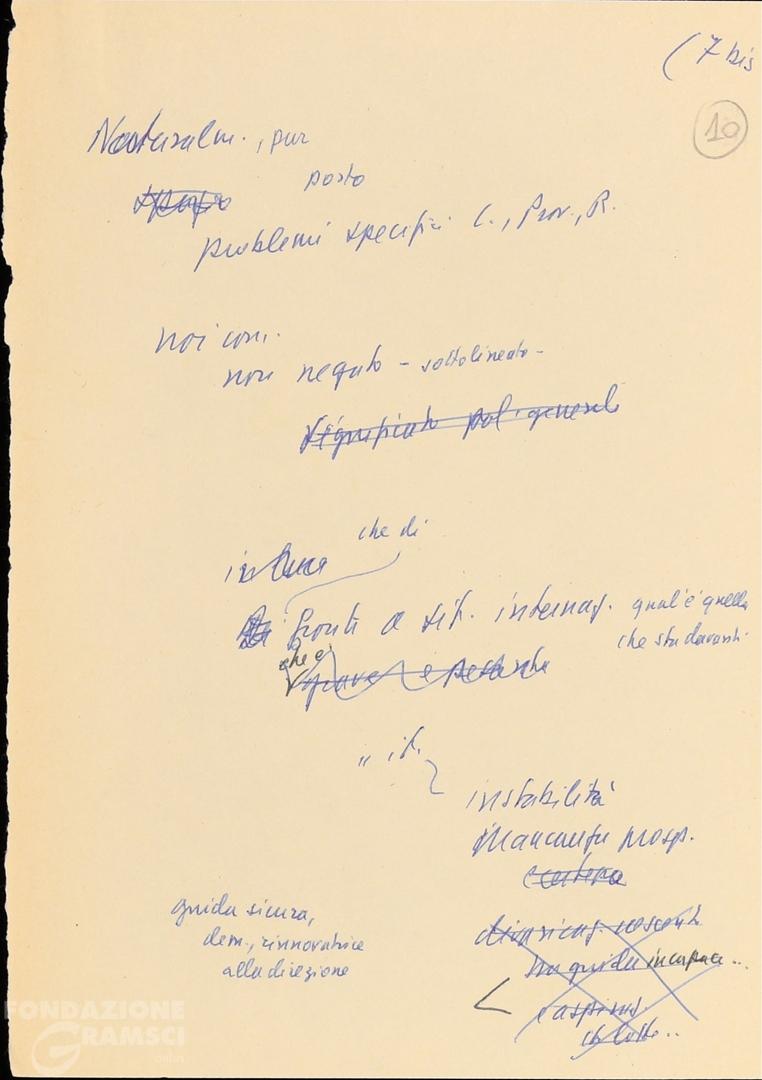 (7 bis
10
Naturalm., pur
posto
problemi specifici C., Prov., R.
noi com.
non negato - sottolineato -
significato pol. generale
che di
in luce
fronte a sit. internaz. qual'è quella
che sta davanti
che è
grave e pesante
" it.
instabilità
mancanza prosp.
guida sicura,
dem., rinnovatrice
alla direzione
tra guida incapace...
e aspiraz.
di lotta..
FONDAZIONE
GRAMSCI
onlus